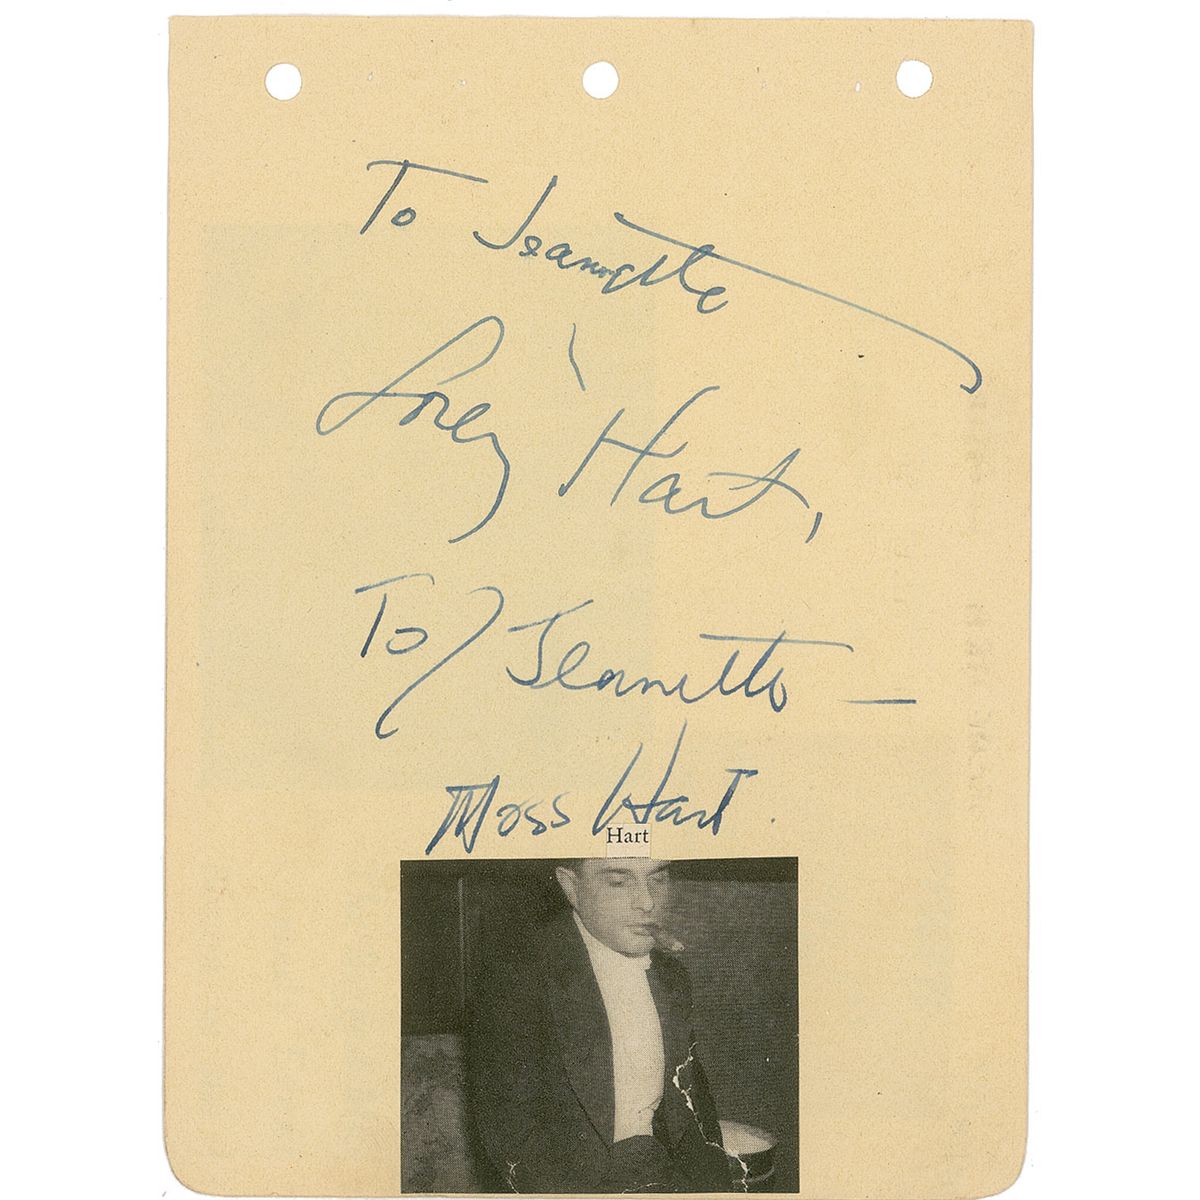 To Jeannette
Lorey Hart,
To Jeannette —
Moss Hart.
Hart